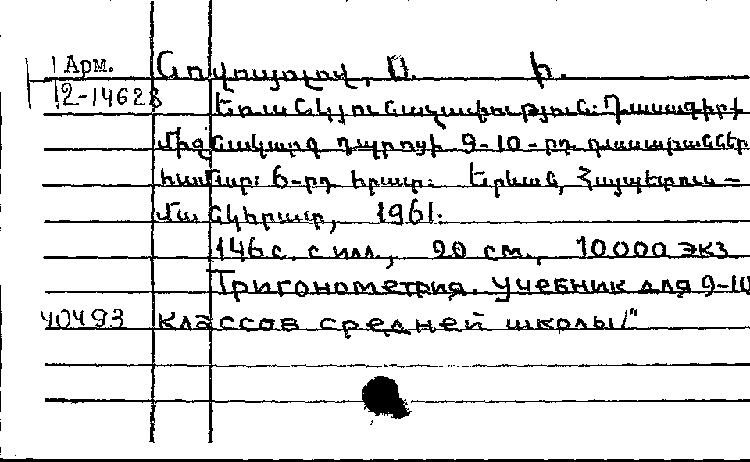 Арм.
2-14623
Նովոսյոլով, Ս. Ի.
Եռանկյունաչափություն: Դասագիրք
միջնակարգ դպրոցի 9-10-րդ դասարանների
համար: 6-րդ հրատ: Երևան, Հայպետուս-
մանկհրատ, 1961.
146 с. с илл., 20 см., 10000 экз
Тригонометрия. Учебник для 9-10
40493 классов средней школы/"